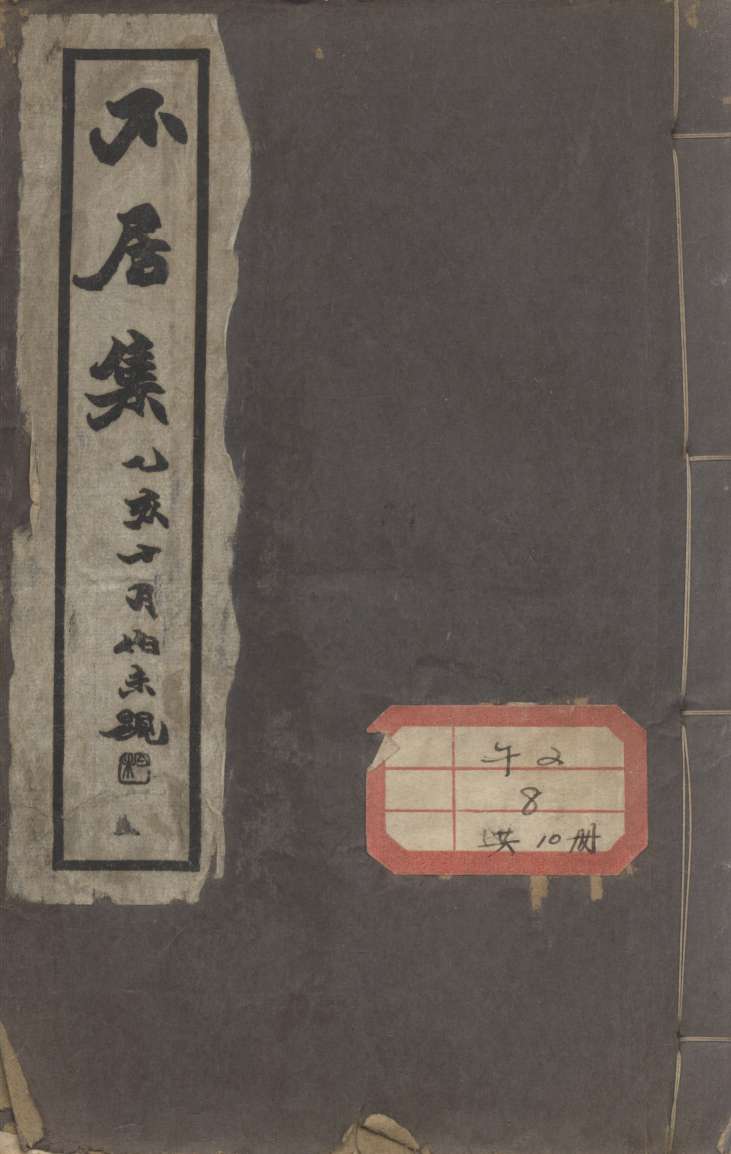 不居集
乙亥十月
午2
8
共10册